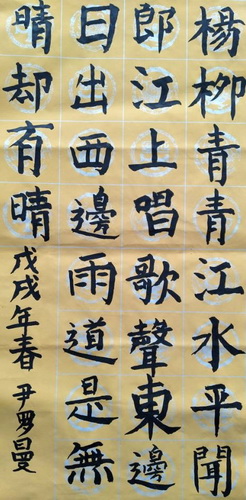 楊柳青青江水平聞
郎江上唱歌聲東邊
日出西邊雨道是無
晴却有晴
戊戌年春 尹罗曼